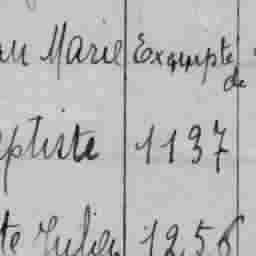 an Marie Exempté
de
eptiste 1137
te Julien 1256